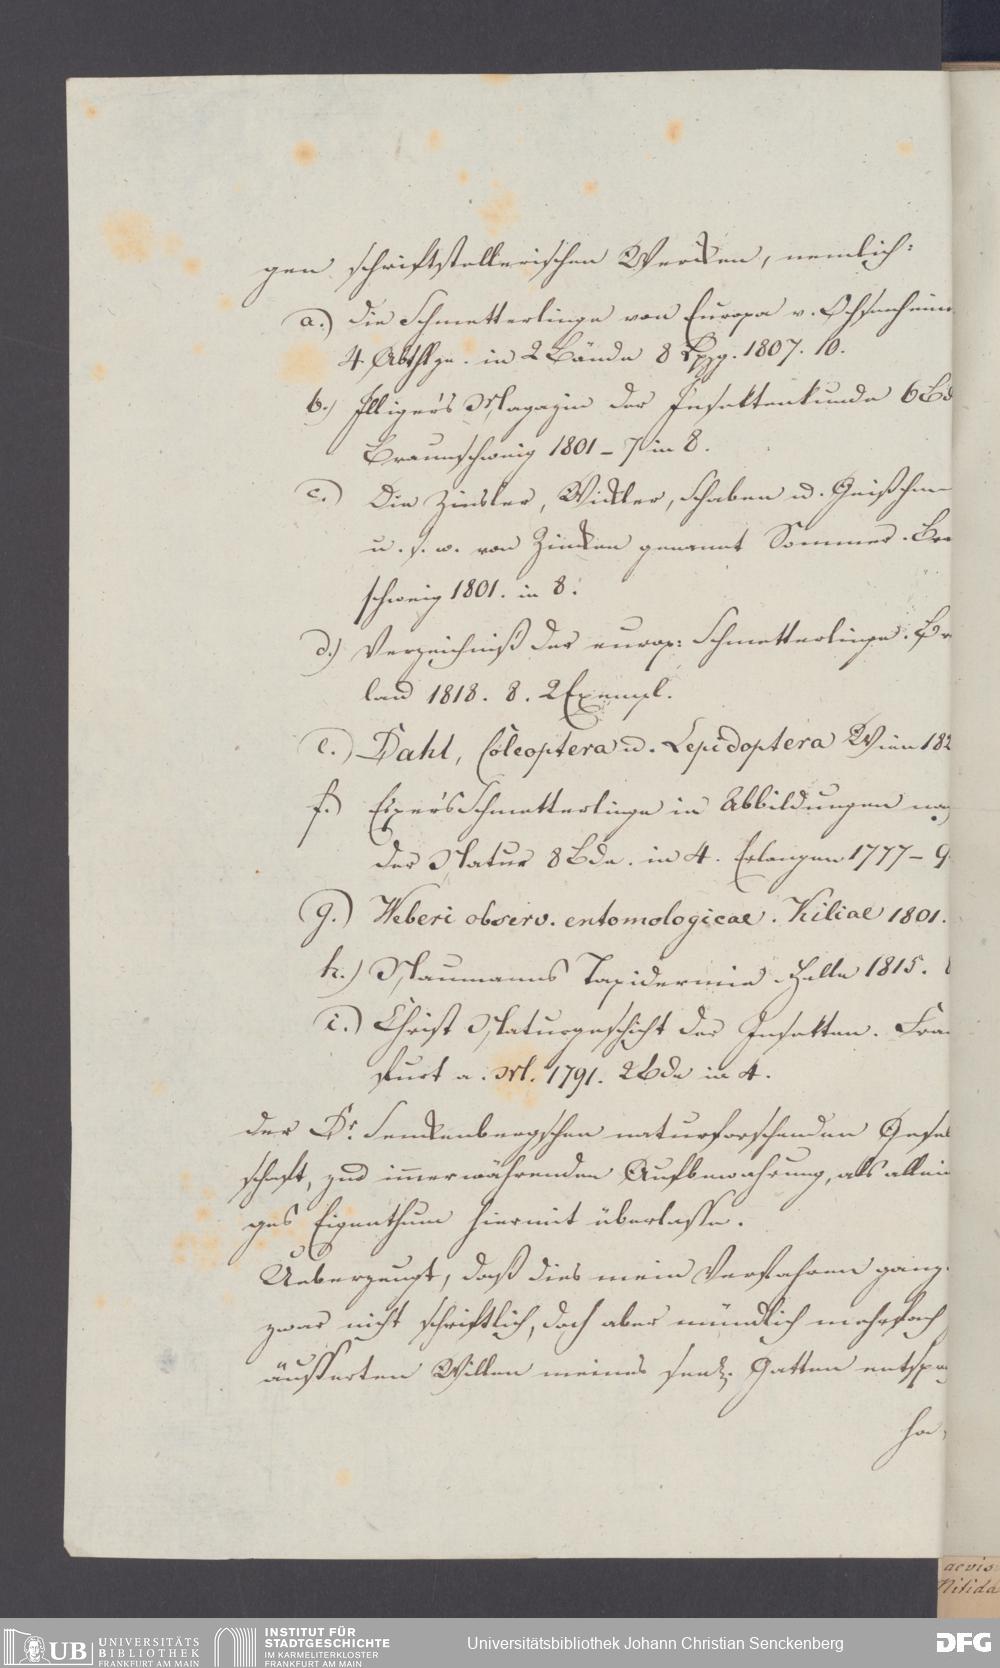 gen schriftstellerischen Wercken, nemlich:
a.) die Schmetterlinge von Europa v. Ochsenheim
4 Abthlge. in 2 Bände 8 Lpzg. 1807. 10.
b.) Illiger's Magazin der Insektenkunde 6 Bd
Braunschweig 1801 - 7 in 8.
c.) Die Zinsler, Wickler, Schaben u. Geißchen
u. s. w. von Zincken genannt Sommer. Br
schweig 1801. in 8.
d.) Verzeichniß der europ: Schmetterlinge.
land 1818. 8. 2 Exempl.
e.) Dahl, Coleoptera u. Lepidoptera Wien 182
f.) Esper's Schmetterlinge in Abbildungen nach
der Natur 8 Bde. in 4. Erlangen 1777 - 9
g.) Weberi observ. entomologicae. Kiliae 1801.
h.) Naumanns Taxidermie. Halle 1815.
i.) Christ Naturgeschicht der Insekten. Fran
furt a. M. 1791. 2 Bde in 4.
der Dr. Senckenbergschen naturforschenden Gesel
schaft, zur immerwährenden Aufbewahrung, als allein
ges Eigenthum hiermit überlasse.
Ueberzeugt, daß dies mein Verfahren ganz
zwar nicht schriftlich, doch aber mündlich mehrfach
äusserten Willen meines seel. Gatten entspr
ha
aevis
Nitida
UB UNIVERSITÄTS
BIBLIOTHEK
FRANKFURT AM MAIN
INSTITUT FÜR
STADTGESCHICHTE
IM KARMELITERKLOSTER
FRANKFURT AM MAIN
Universitätsbibliothek Johann Christian Senckenberg
DFG